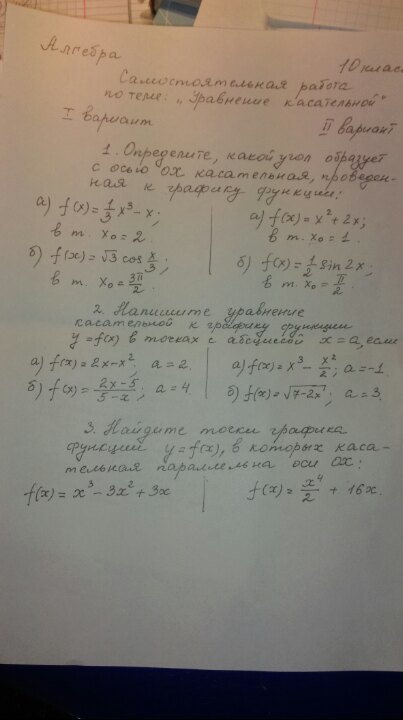 Алгебра
10 класс
Самостоятельная работа
по теме: „Уравнение касательной"
I вариант
II вариант
1. Определите, какой угол образует
с осью ОХ касательная, проведен-
ная к графику функции:
а) f(x) = 1/3 x³ - x; а) f(x) = x² + 2x;
в т. x₀ = 2. в т. x₀ = 1.
б) f(x) = √3 cos x/3; б) f(x) = 1/2 sin 2x;
в т. x₀ = 3π/2. в т. x₀ = π/2.
2. Напишите уравнение
касательной к графику функции
y = f(x) в точках с абсциссой x = a, если
а) f(x) = 2x - x²; a = 2. а) f(x) = x³ - x²/2; a = -1.
б) f(x) = (2x-5)/(5-x); a = 4. б) f(x) = √(7-2x); a = 3.
3. Найдите точки графика
функции y = f(x), в которых каса-
тельная параллельна оси ОХ:
f(x) = x³ - 3x² + 3x f(x) = x⁴/2 + 16x.